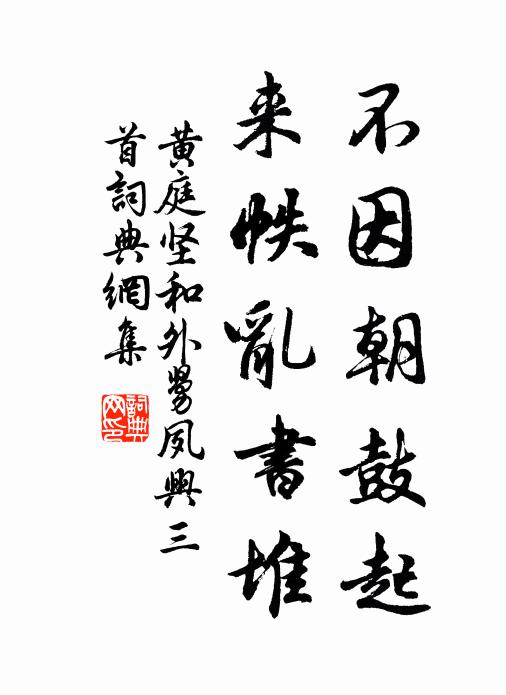 不因朝鼓起
来帙亂書堆
黄庭坚和外舅夙興三
首詞典網集
詞典
网印